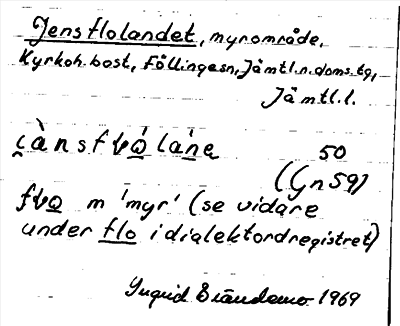 Jensflolandet, myrområde,
Kyrkoh.bost, Föllingesn, Jämtl.n.doms.tg,
Jämtl.l.
50
(Gn59)
m 'myr' (se vidare
under flo i dialektordregistret)
Ingrid 1969